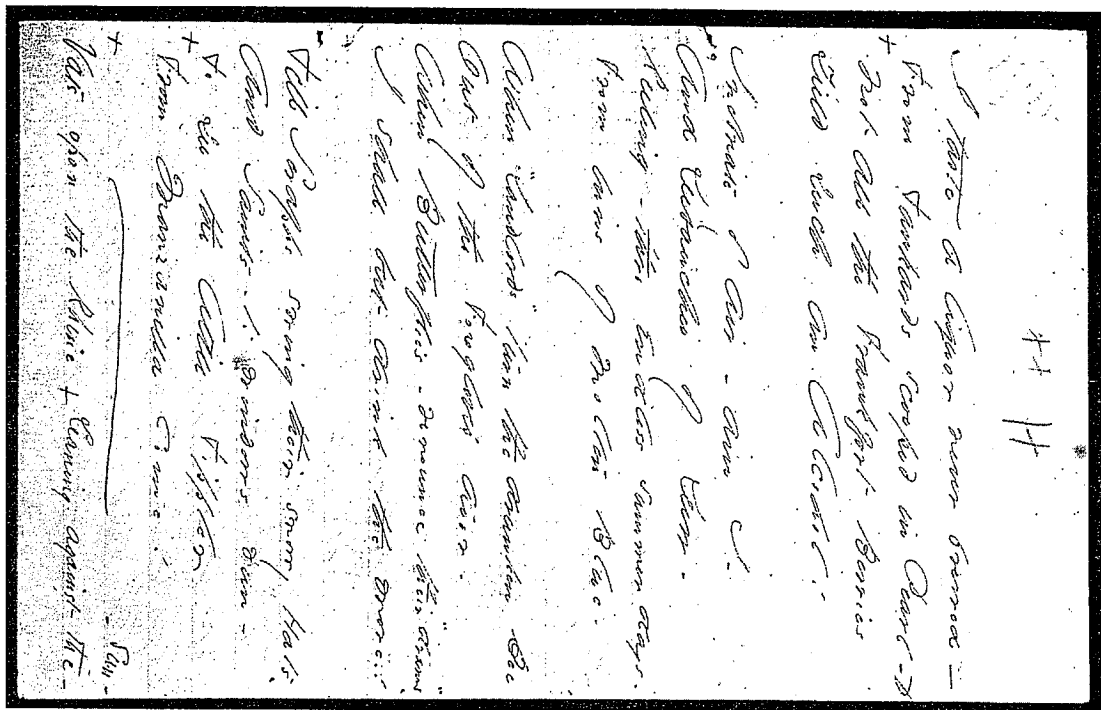 I taste a liquor never brewed –
From Tankards scooped in Pearl –
+ Not all the Frankfort Berries
Yield such an Alcohol!
Inebriate of air – am I –
And Debauchee of Dew –
Reeling – thro endless summer days –
From inns of Molten Blue –
When "Landlords" turn the drunken Bee
Out of the Foxglove's door –
When Butterflies – renounce their "drams" –
I shall but drink the more!
Till Seraphs swing their snowy Hats –
And Saints – to windows run –
+ To see the little Tippler
From Manzanilla come!
+ Vats upon the Rhine + Leaning against the – Sun –